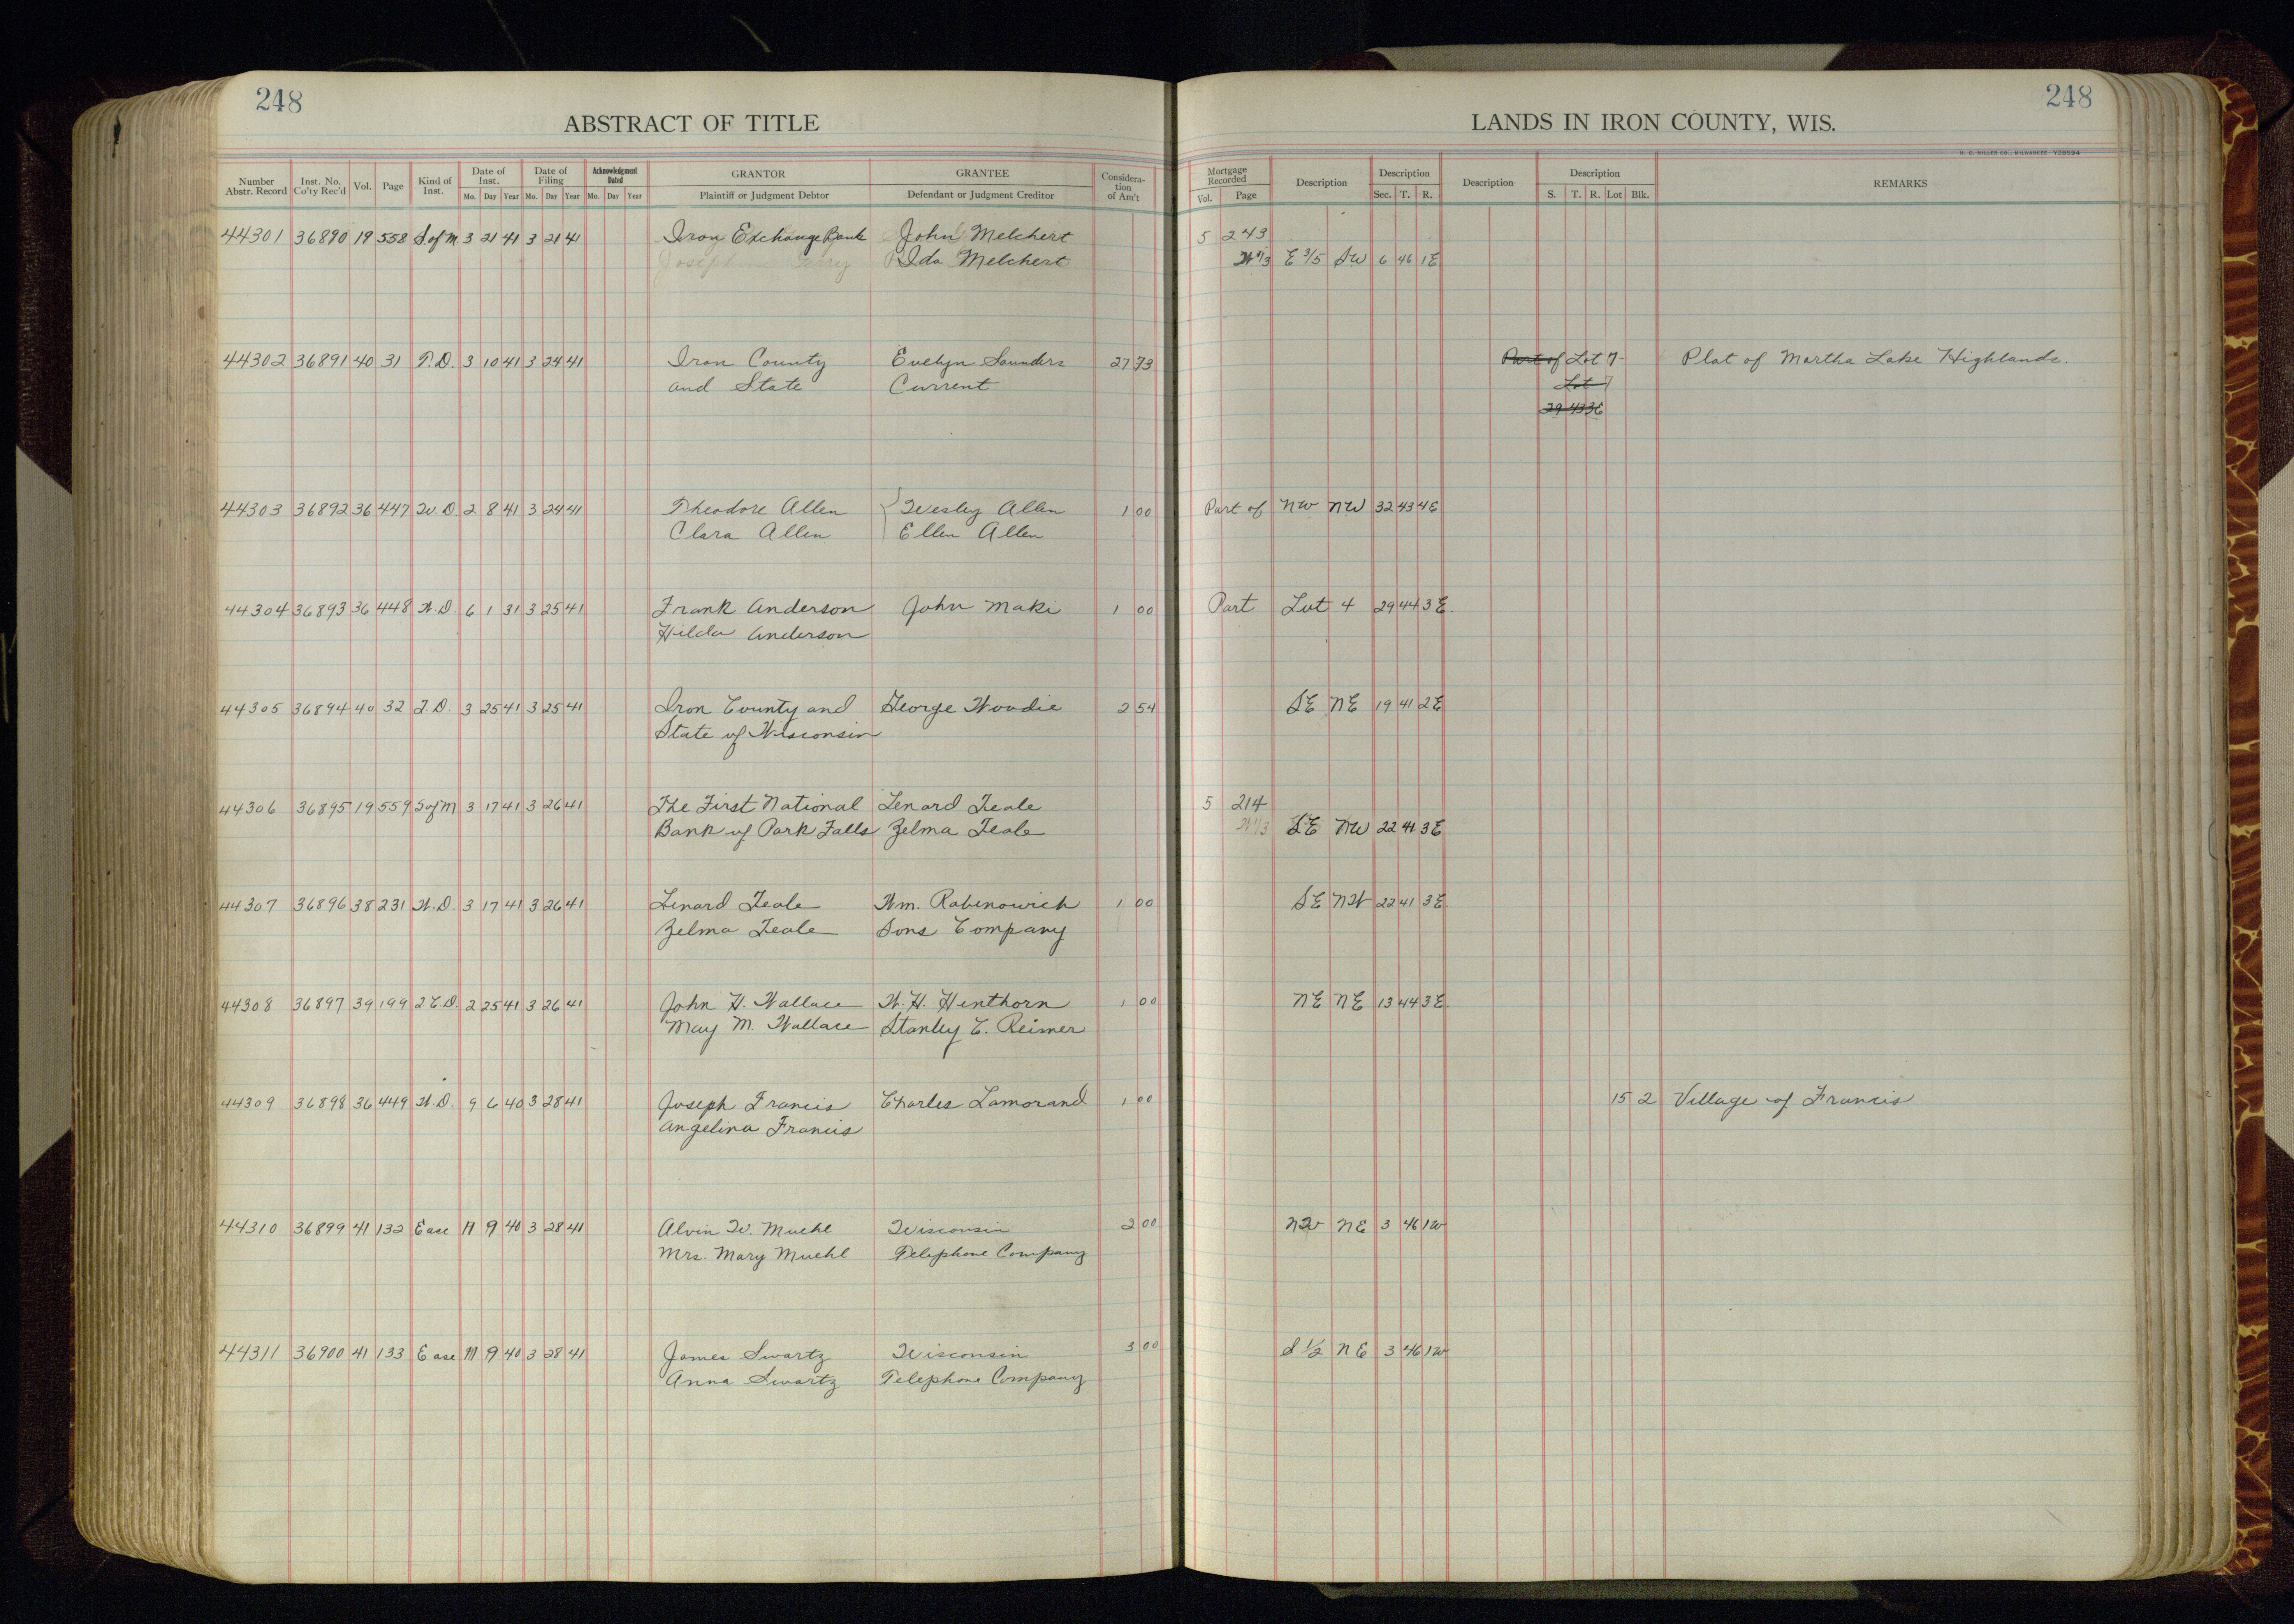 248
ABSTRACT OF TITLE
Number Abstr. Record Inst. No. Co'ty Rec'd Vol. Page Kind of Inst. Date of Inst. Mo. Day Year Date of Filing Mo. Day Year Acknowledgment Dated Mo. Day Year GRANTOR Plaintiff or Judgment Debtor GRANTEE Defendant or Judgment Creditor Considera-tion of Am't
44301 36890 19 558 S. of M. 3 21 41 3 21 41 Iron Exchange Bank John Melchert
Ida Melchert
44302 36891 40 31 T.D. 3 10 41 3 24 41 Iron County Evelyn Saunders 27 73
and State Current
44303 36892 36 447 W.D. 2 8 41 3 24 41 Theodore Allen Wesley Allen 1 00
Clara Allen Ellen Allen
44304 36893 36 448 W.D. 6 1 31 3 25 41 Frank Anderson John Maki 1 00
Hilda Anderson
44305 36894 40 32 T.D. 3 25 41 3 25 41 Iron County and George Woodie 2 54
State of Wisconsin
44306 36895 19 559 S of M 3 17 41 3 26 41 The First National Lenard Teale
Bank of Park Falls Zelma Teale
44307 36896 38 231 W.D. 3 17 41 3 26 41 Lenard Teale Wm. Rabenowich 1 00
Zelma Teale Sons Company
44308 36897 39 199 2 C.D. 2 25 41 3 26 41 John H. Wallace W.H. Henthorn 1 00
May M. Wallace Stanley C. Reimer
44309 36898 36 449 W.D. 9 6 40 3 28 41 Joseph Francis Charles Lamorand 1 00
Angelina Francis
44310 36899 41 132 Ease 11 9 40 3 28 41 Alvin W. Muehl Wisconsin 2 00
Mrs. Mary Muehl Telephone Company
44311 36900 41 133 Ease 11 9 40 3 28 41 James Swartz Wisconsin 3 00
Anna Swartz Telephone Company
248
LANDS IN IRON COUNTY, WIS.
H. C. MILLER CO., MILWAUKEE
Mortgage Recorded Vol. Page Description Description Sec. T. R. Description Description S. T. R. Lot Blk. REMARKS
5 243
W 1/3 E 3/5 SW 6 46 1E
Part of Lot 7 Plat of Martha Lake Highlands.
Lot 7
29 43 3E
Part of NW NW 32 43 4E
Part Lot 4 29 44 3E.
SE NE 19 41 2E
5 214
W 1/3 SE NW 22 41 3E
SE NW 22 41 3E.
NE NE 13 44 3E.
15 2 Village of Francis
NW NE 3 46 1W
S 1/2 NE 3 46 1W